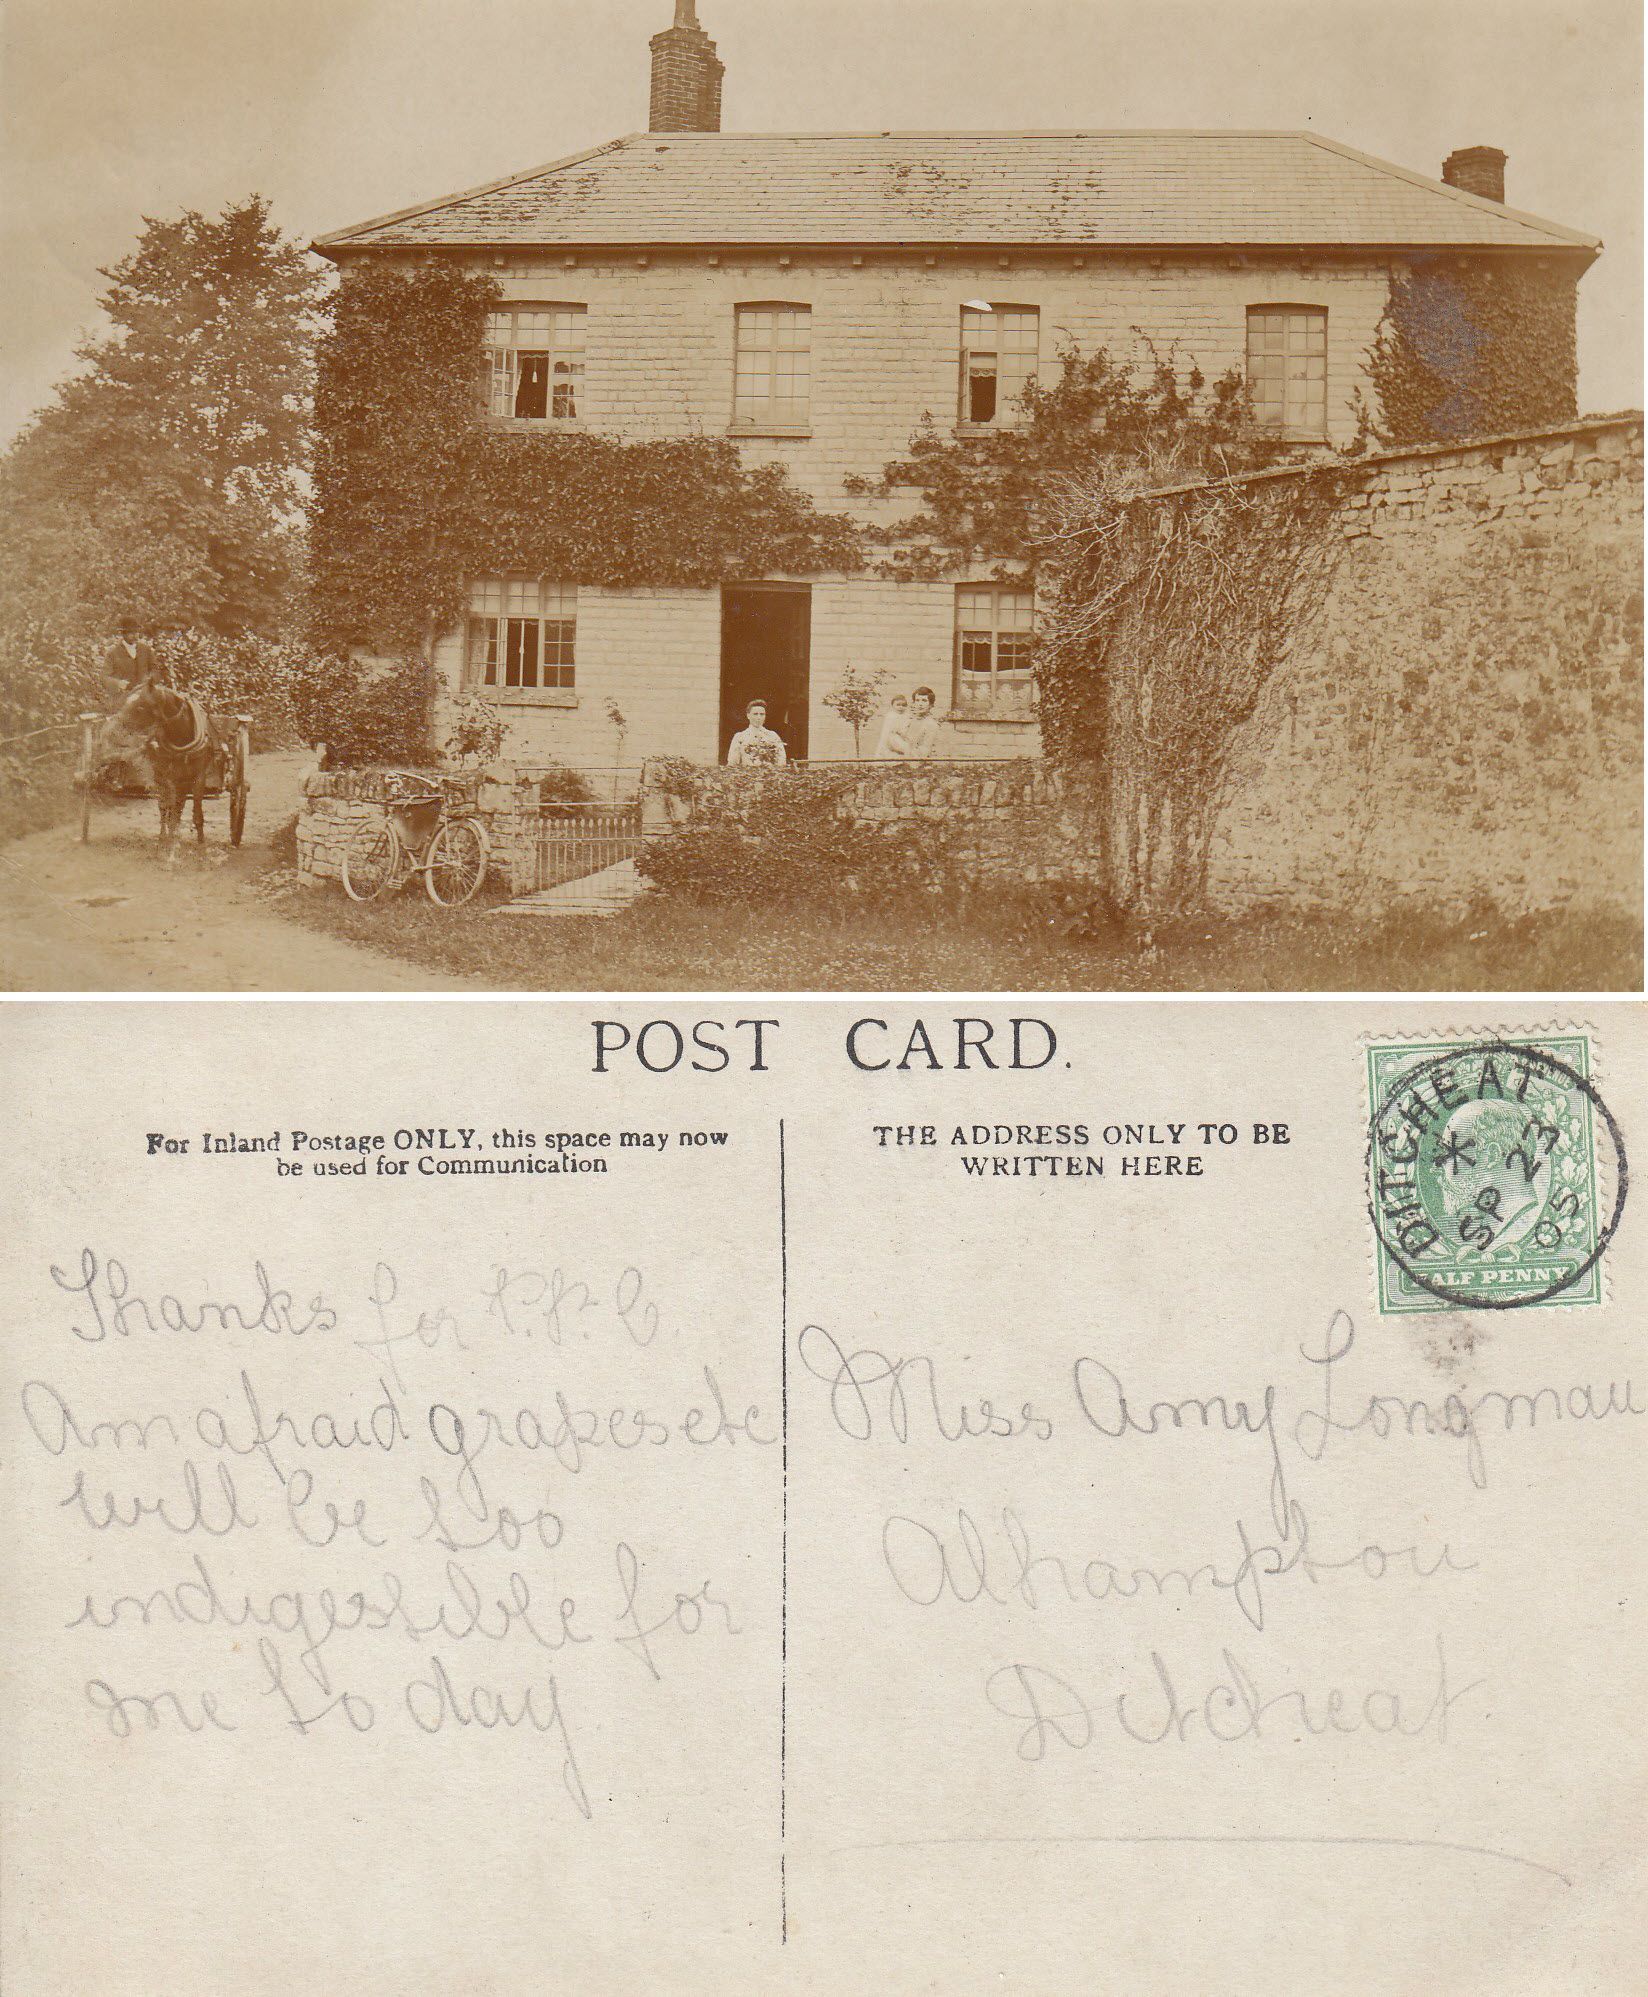 POST CARD.
For Inland Postage ONLY, this space may now
be used for Communication
THE ADDRESS ONLY TO BE
WRITTEN HERE
DITCHEAT
*
SP 23
05
HALF PENNY
Thanks for P.P.C.
Am afraid grapes etc
will be too
indigestible for
me to day
Miss Amy Longman
Alhampton
Ditcheat.